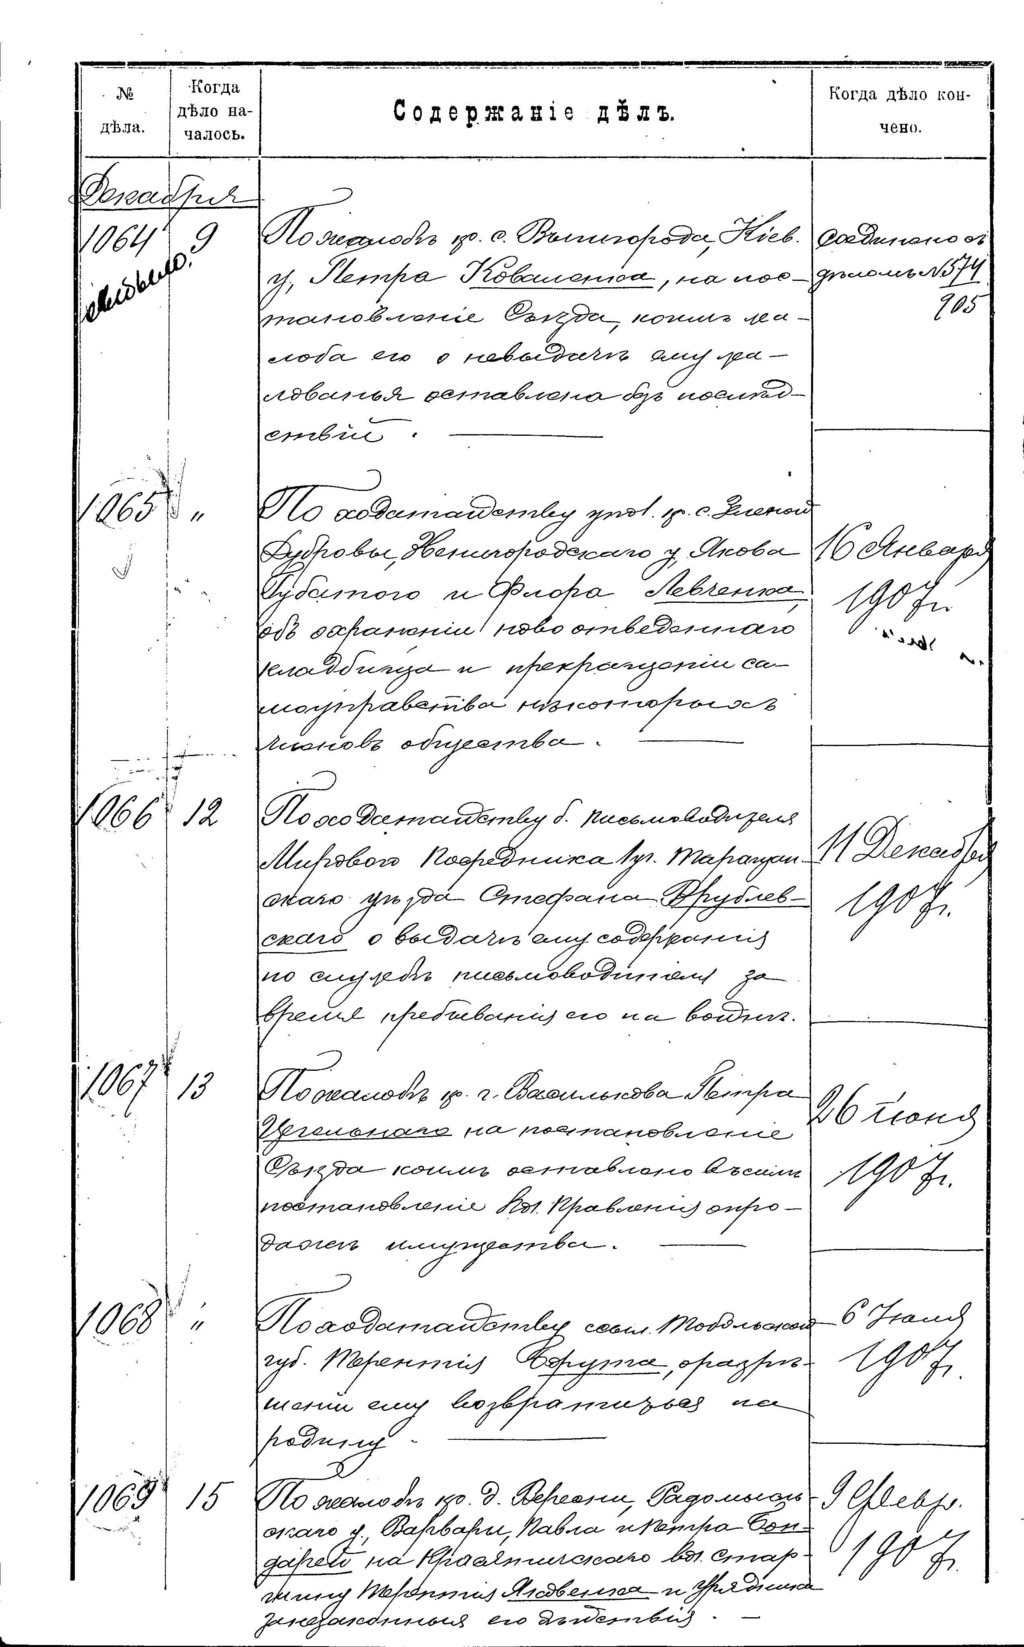 № дѣла.
Когда дѣло началось.
Содержаніе дѣлъ.
Когда дѣло кончено.
Декабря
1064 9
По жалобѣ кр. с. Вышгорода, Кіев.
у, Петра Коваленка, на пос-
тановленіе Съѣзда, коимъ жа-
лоба его о невыдачѣ ему жа-
лованья оставлена безъ послѣд-
ствій.
соединено съ
дѣломъ № 574
905
1065 "
По ходатайству упол. кр. с. Зеленой
Дубровы, Звенигородскаго у, Якова
Губатого и Флора Левченка,
объ охраненіи ново отведеннаго
кладбища и прекращеніи са-
моуправства нѣкоторыхъ
членовъ общества.
16 Января
1907 г.
1066 12
По ходатайству б. письмоводителя
Мирового Посредника 1 уч. Таращан-
скаго уѣзда Стефана Врублев-
скаго о выдачѣ ему содержанія
по службѣ письмоводителя за
время пребыванія его на войнѣ.
11 Декабря
1907 г.
1067 13
По жалобѣ кр. г. Василькова Петра
на постановленіе
Съѣзда коимъ оставлено въ силѣ
постановленіе Вол. Правленія о про-
дажѣ имущества.
26 Іюня
1907 г.
1068 "
По ходатайству ссыл. Тобольской
губ. Терентія о разрѣ-
шеніи ему возвратиться на
родину.
6 Іюля
1907 г.
1069 15
По жалобѣ кр. д. Вересни, Радомысль-
скаго у, Варвары, Павла и Петра Бон-
дарей на Красятичскаго вол. стар-
шину Терентія Яковенка и Урядника
за незаконныя его дѣйствія.
9 Февр.
1907 г.